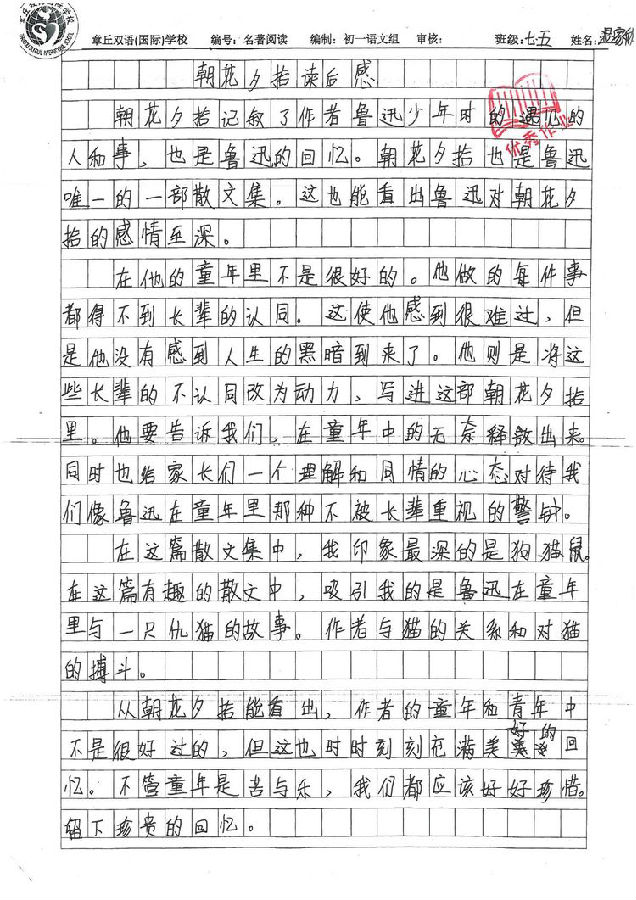 章丘双语(国际)学校 编号：名著阅读 编制：初一语文组 审核： 班级：七.五 姓名：
朝花夕拾读后感
朝花夕拾记叙了作者鲁迅少年时的遇见的
人和事，也是鲁迅的回忆。朝花夕拾也是鲁迅
唯一的一部散文集。这也能看出鲁迅对朝花夕
拾的感情至深。
在他的童年里不是很好的。他做的每件事
都得不到长辈的认同．这使他感到很难过，但
是他没有感到人生的黑暗到来了。他则是将这
些长辈的不认同改为动力、写进这部朝花夕拾
里。他要告诉我们，在童年中的无奈释放出来。
同时也给家长们一个理解和同情的心态对待我
们像鲁迅在童年里那种不被长辈重视的警钟。
在这篇散文集中，我印象最深的是狗猫鼠。
在这篇有趣的散文中，吸引我的是鲁迅在童年
里与一只仇猫的故事。作者与猫的关系和对猫
的搏斗。
从朝花夕拾能看出，作者的童年和青年中
不是很好过的，但这也时时刻刻充满美好的回
忆．不管童年是苦与乐，我们都应该好好珍惜。
留下珍贵的回忆。
优秀作业